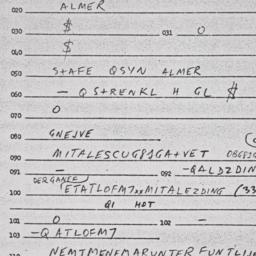 020 ALMER
030 $ 031 0
040 $
050 STAFE QSYN ALMER
060 — QSTRENKL H GL $
070 0
080 GNEJVE
090 MITALESCUG8JGA+VET
091 — 092 -QALDZDIN
DERGANZE
100 ETATLOFM7XXMITALEZDING (33
QI HDT
101 0 102 —
103 -QATLOFM7
NEMTMENEMARUNTER FUNTLIJE